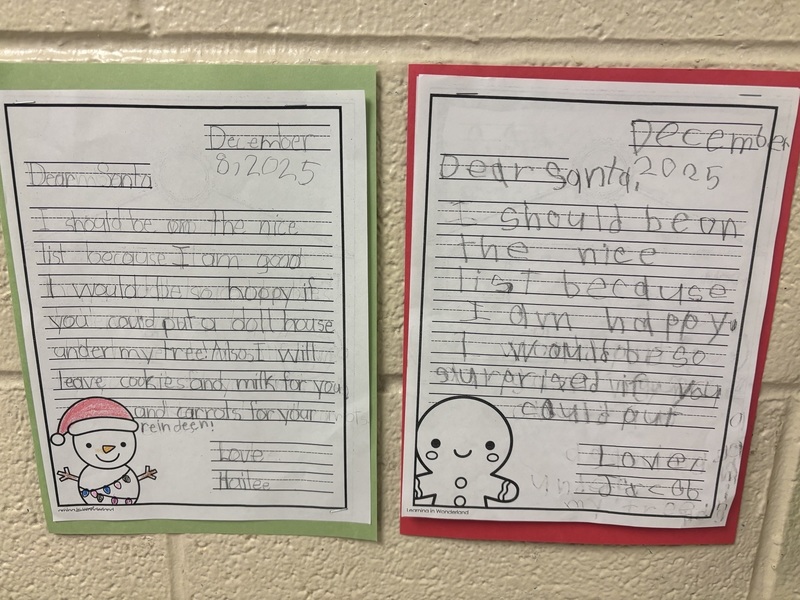 December
8, 2025
Dear Santa
I should be on the nice
list because I am good
I would be so happy if
you could put a doll house
under my tree! Also, I will
leave cookies and milk for you
and carrots for your
reindeen!
Love
Hailee
December
Dear Santa, 2025
I should be on
the nice
list because
I am happy.
I would be so
surprised if you
could put
Love,
Jacob
Learning in Wonderland